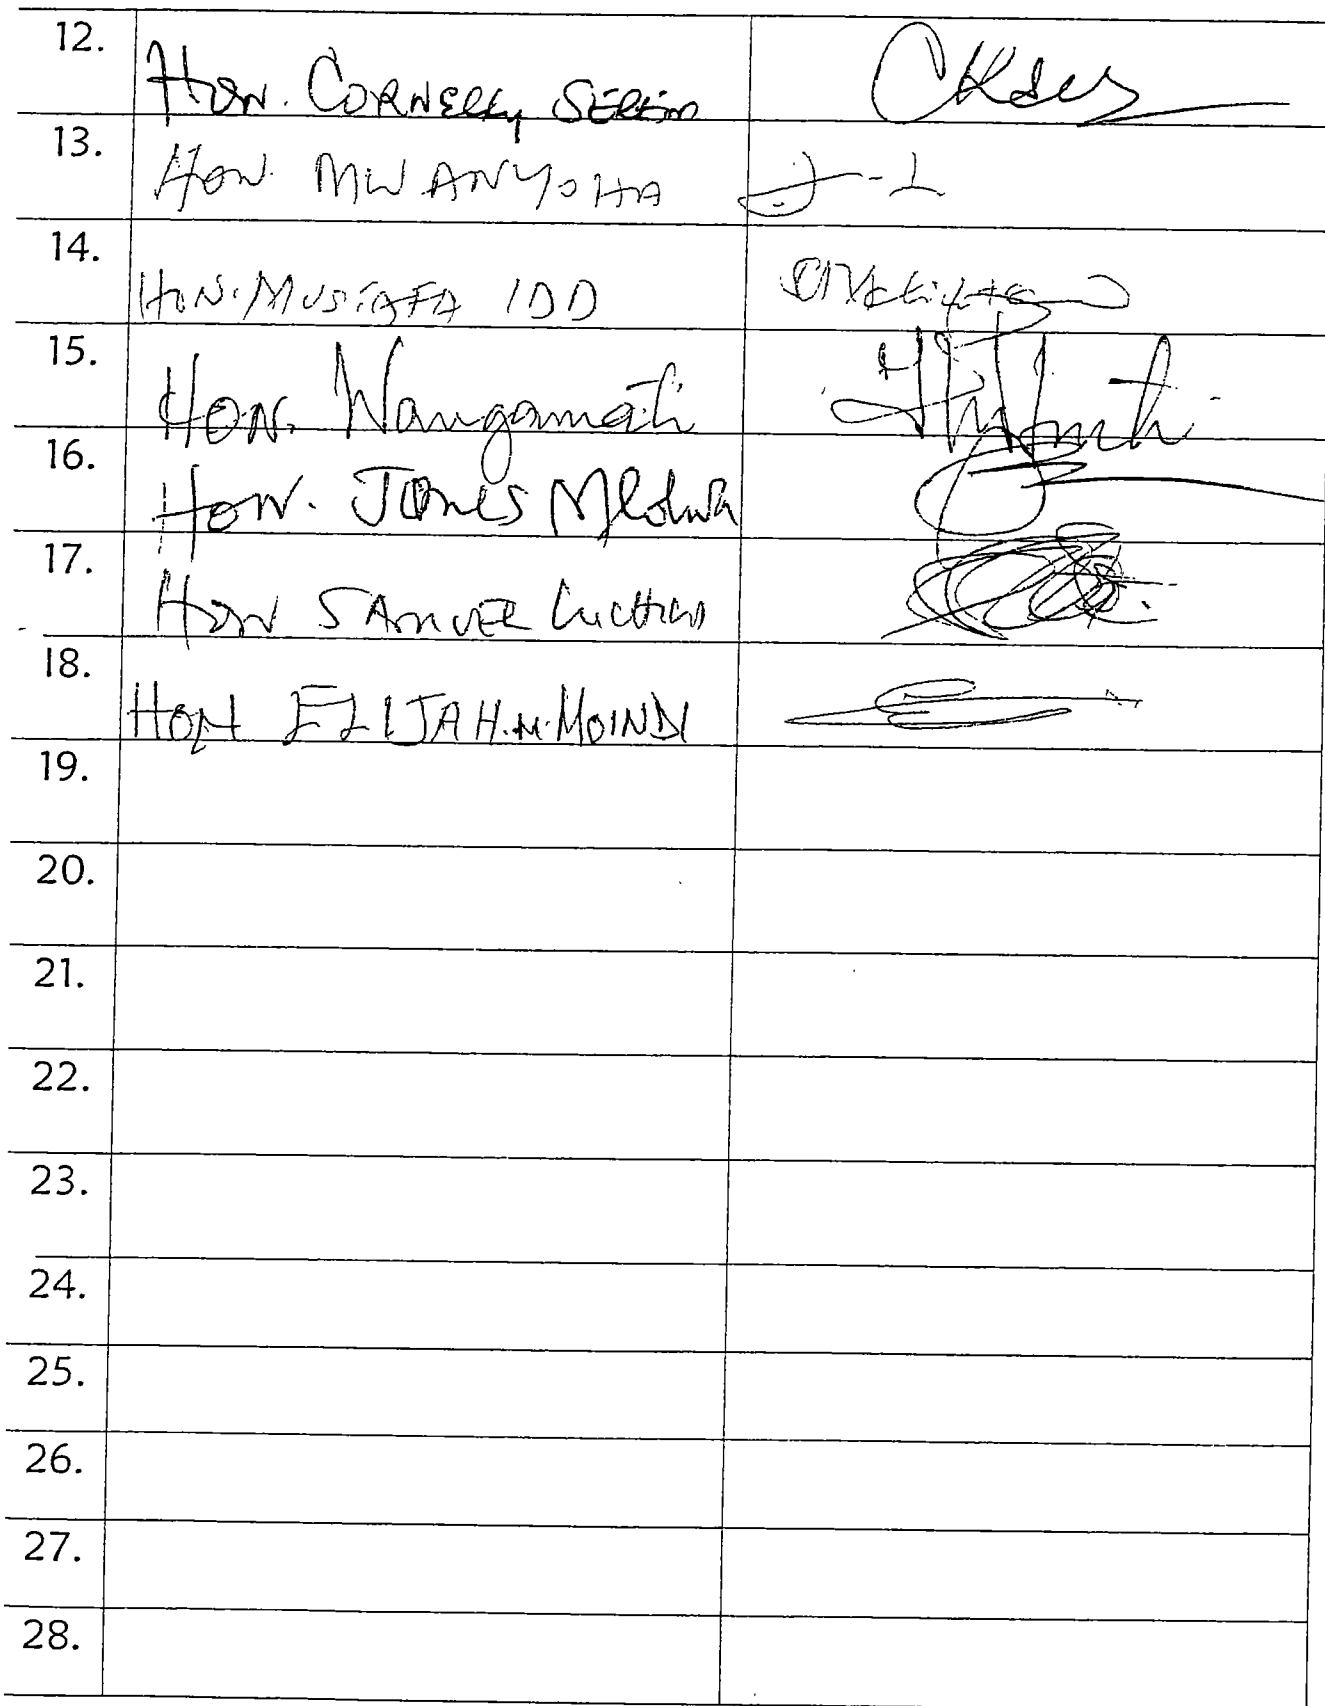 12. HON. CORNELLY SEREM
13. HON. MWANYOHA
14. HON. MUSTAFA IDD
15. HON. Wangamati
16. HON. JONES Mlolwa
17. HON SAMUEL
18. HON ELIJAH.M.MOINDI
19.
20.
21.
22.
23.
24.
25.
26.
27.
28.